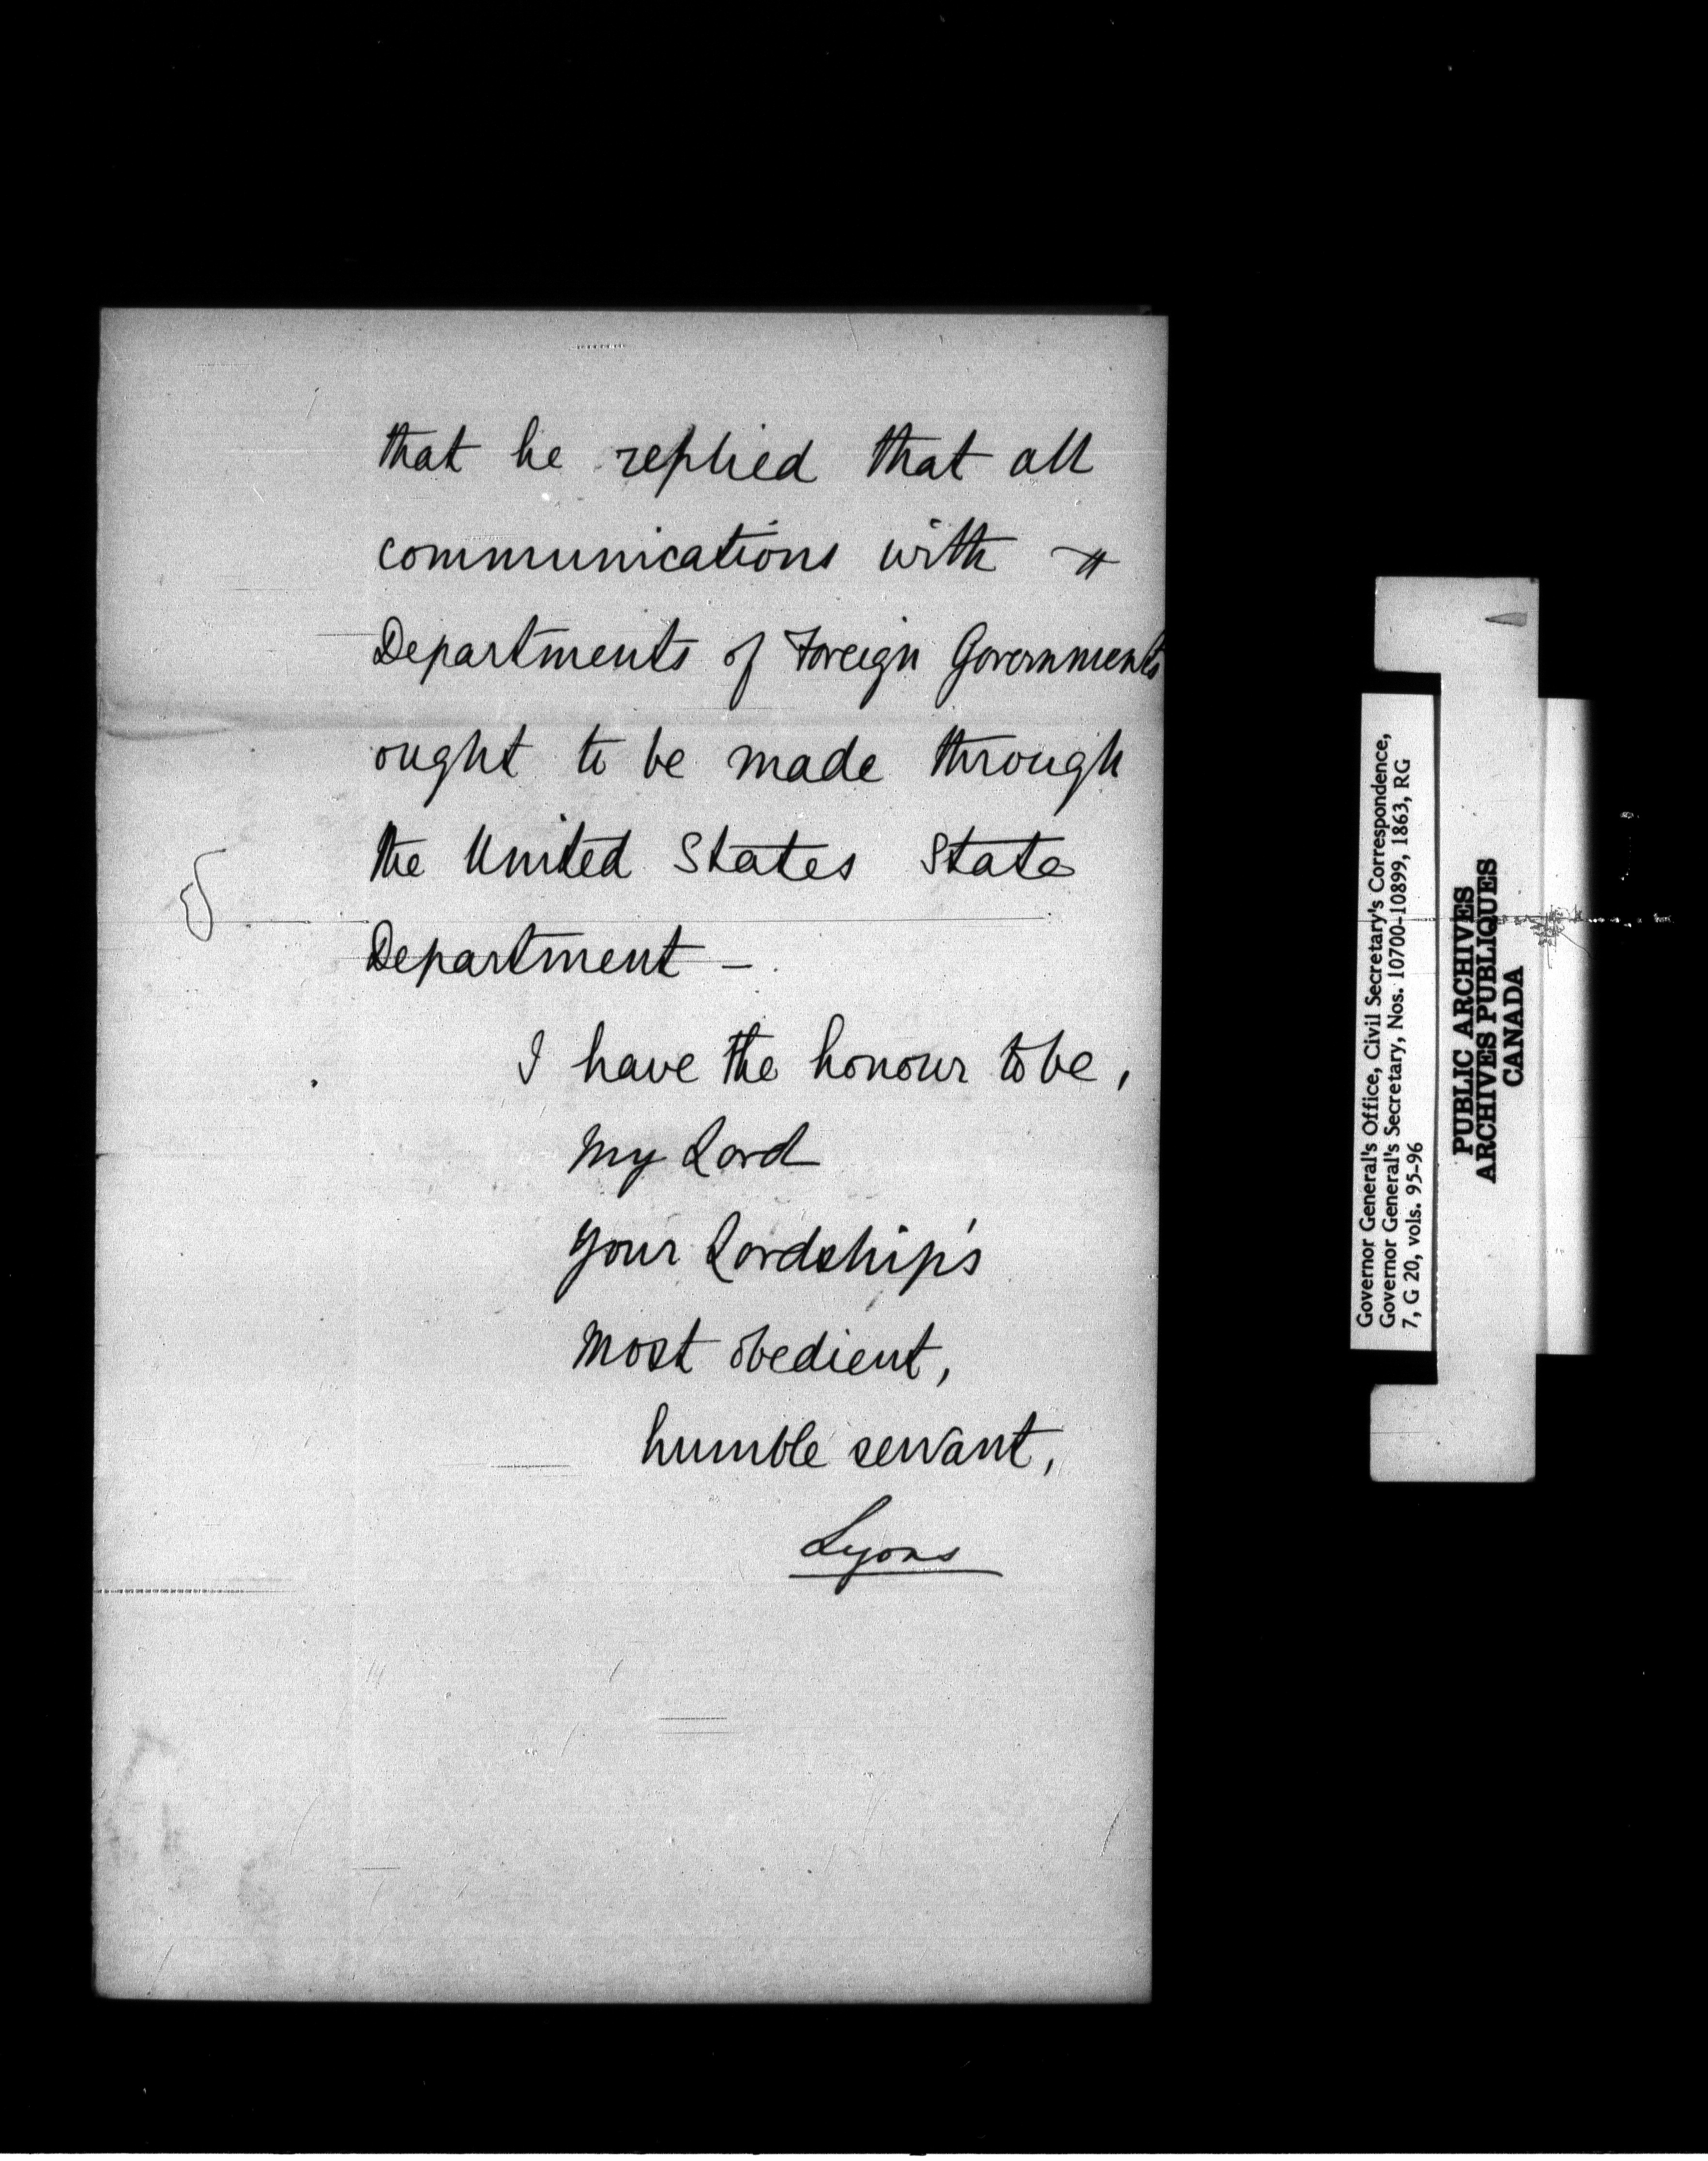 that he replied that all
communications with
Departments of Foreign Governments
ought to be made through
the United States State
Department –
I have the honour to be,
My Lord
Your Lordship's
Most obedient,
humble servant,
Lyons
Governor General's Office, Civil Secretary's Correspondence,
Governor General's Secretary, Nos. 10700-10899, 1863, RG
7, G 20, vols. 95-96
PUBLIC ARCHIVES
ARCHIVES PUBLIQUES
CANADA